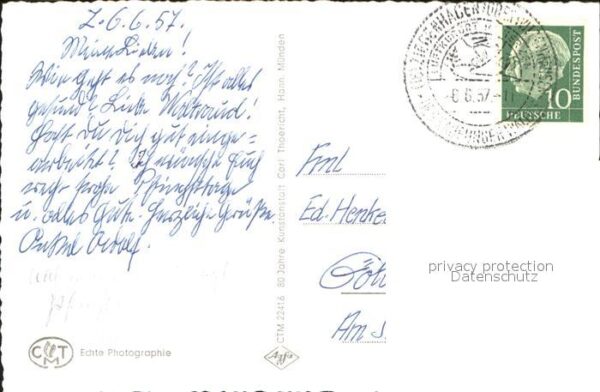 Z. 6.6.57.
Meine Lieben!
Wie geht es euch? Ist alles
gesund? Liebe Waltraud!
Hast Du Dich gut einge=
arbeitet? Ich wünsche Euch
recht frohe Pfingsttage
u. alles Gute. Herzliche Grüße
Onkel Adolf.
CTM
Echte Photographie
CTM 22416 80 Jahre Kunstanstalt Carl Thoericht, Hann. Münden
Agfa
-6.6.57.-11
10
DEUTSCHE
BUNDESPOST
Fml
Ed. Henke
Am
privacy protection
Datenschutz